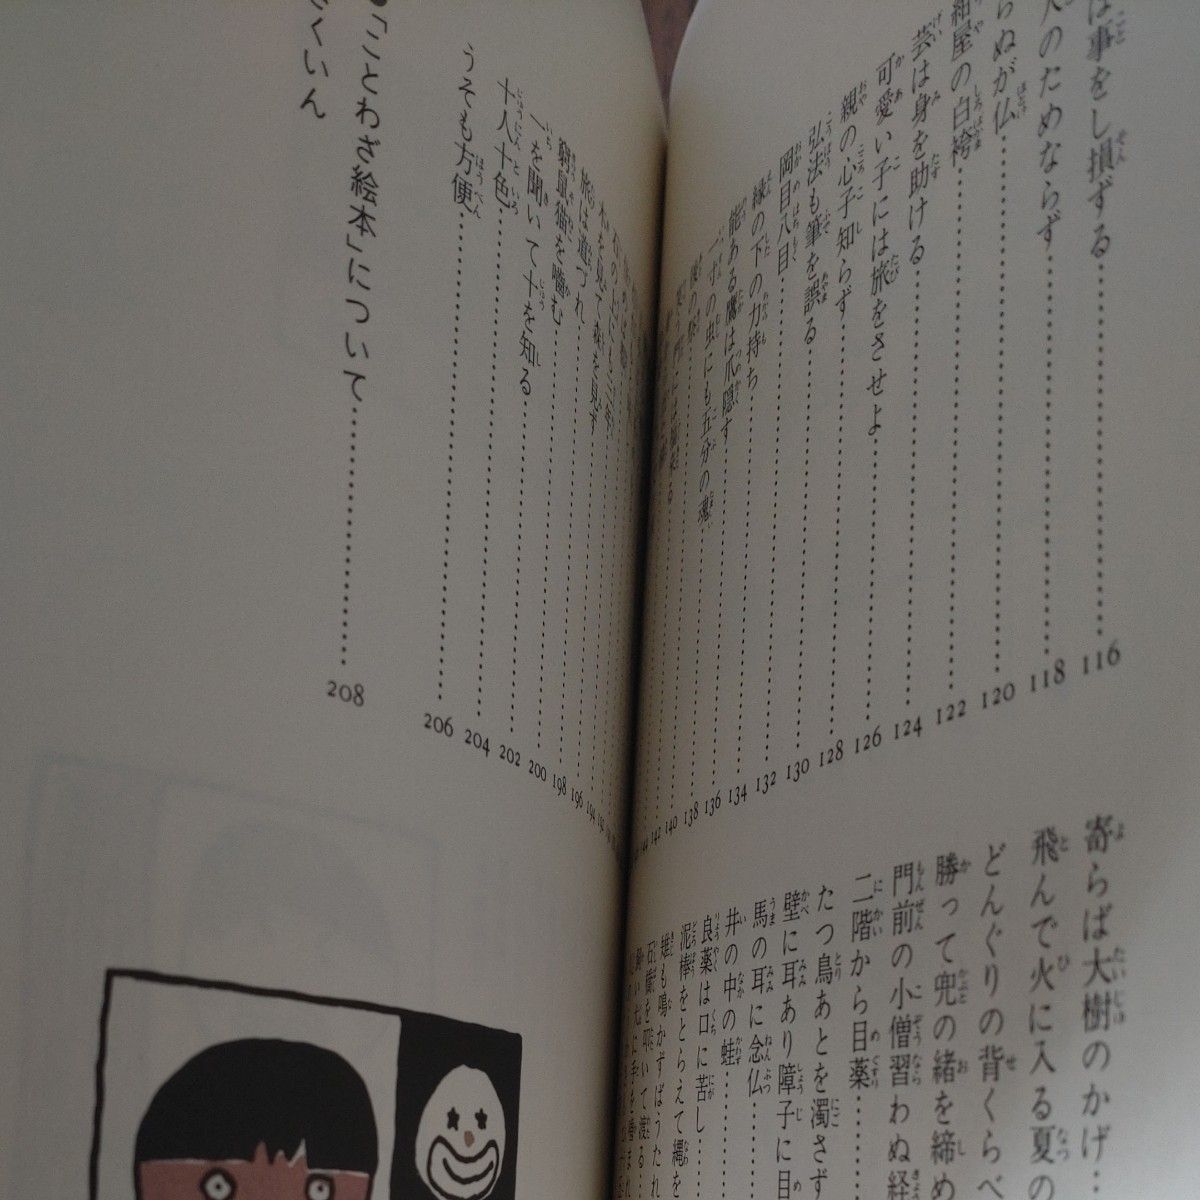 は事をし損ずる……116
人のためならず……118
らぬが仏……120
紺屋の白袴……122
芸は身を助ける……124
可愛い子には旅をさせよ……126
親の心子知らず……128
弘法も筆を誤る……130
岡目八目……132
縁の下の力持ち……134
能ある鷹は爪隠す……136
一寸の虫にも五分の魂……138
140
142
石の上にも三年
木を見て森を見ず……196
旅は道づれ……198
窮鼠猫を噛む……200
一を聞いて十を知る……202
十人十色……204
うそも方便……206
●「ことわざ絵本」について……208
さくいん
寄らば大樹のかげ……
飛んで火に入る夏の
どんぐりの背くらべ
勝って兜の緒を締め
門前の小僧習わぬ経
二階から目薬……
たつ鳥あとを濁さず
壁に耳あり障子に目
馬の耳に念仏……
井の中の蛙……
良薬は口に苦し……
泥棒をとらえて縄を
雉も鳴かずばうたれ
石橋を叩いて渡る……
飼い犬に手を噛まれ